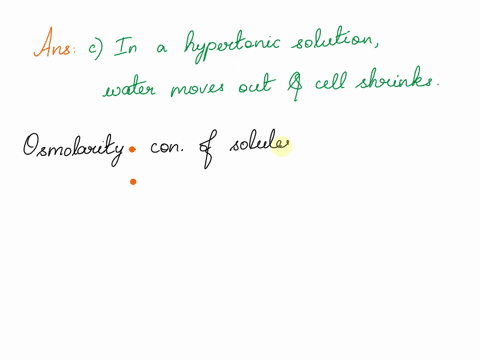 Ans: c) In a hypertonic solution,
water moves out & cell shrinks.
Osmolarity : con. of solute